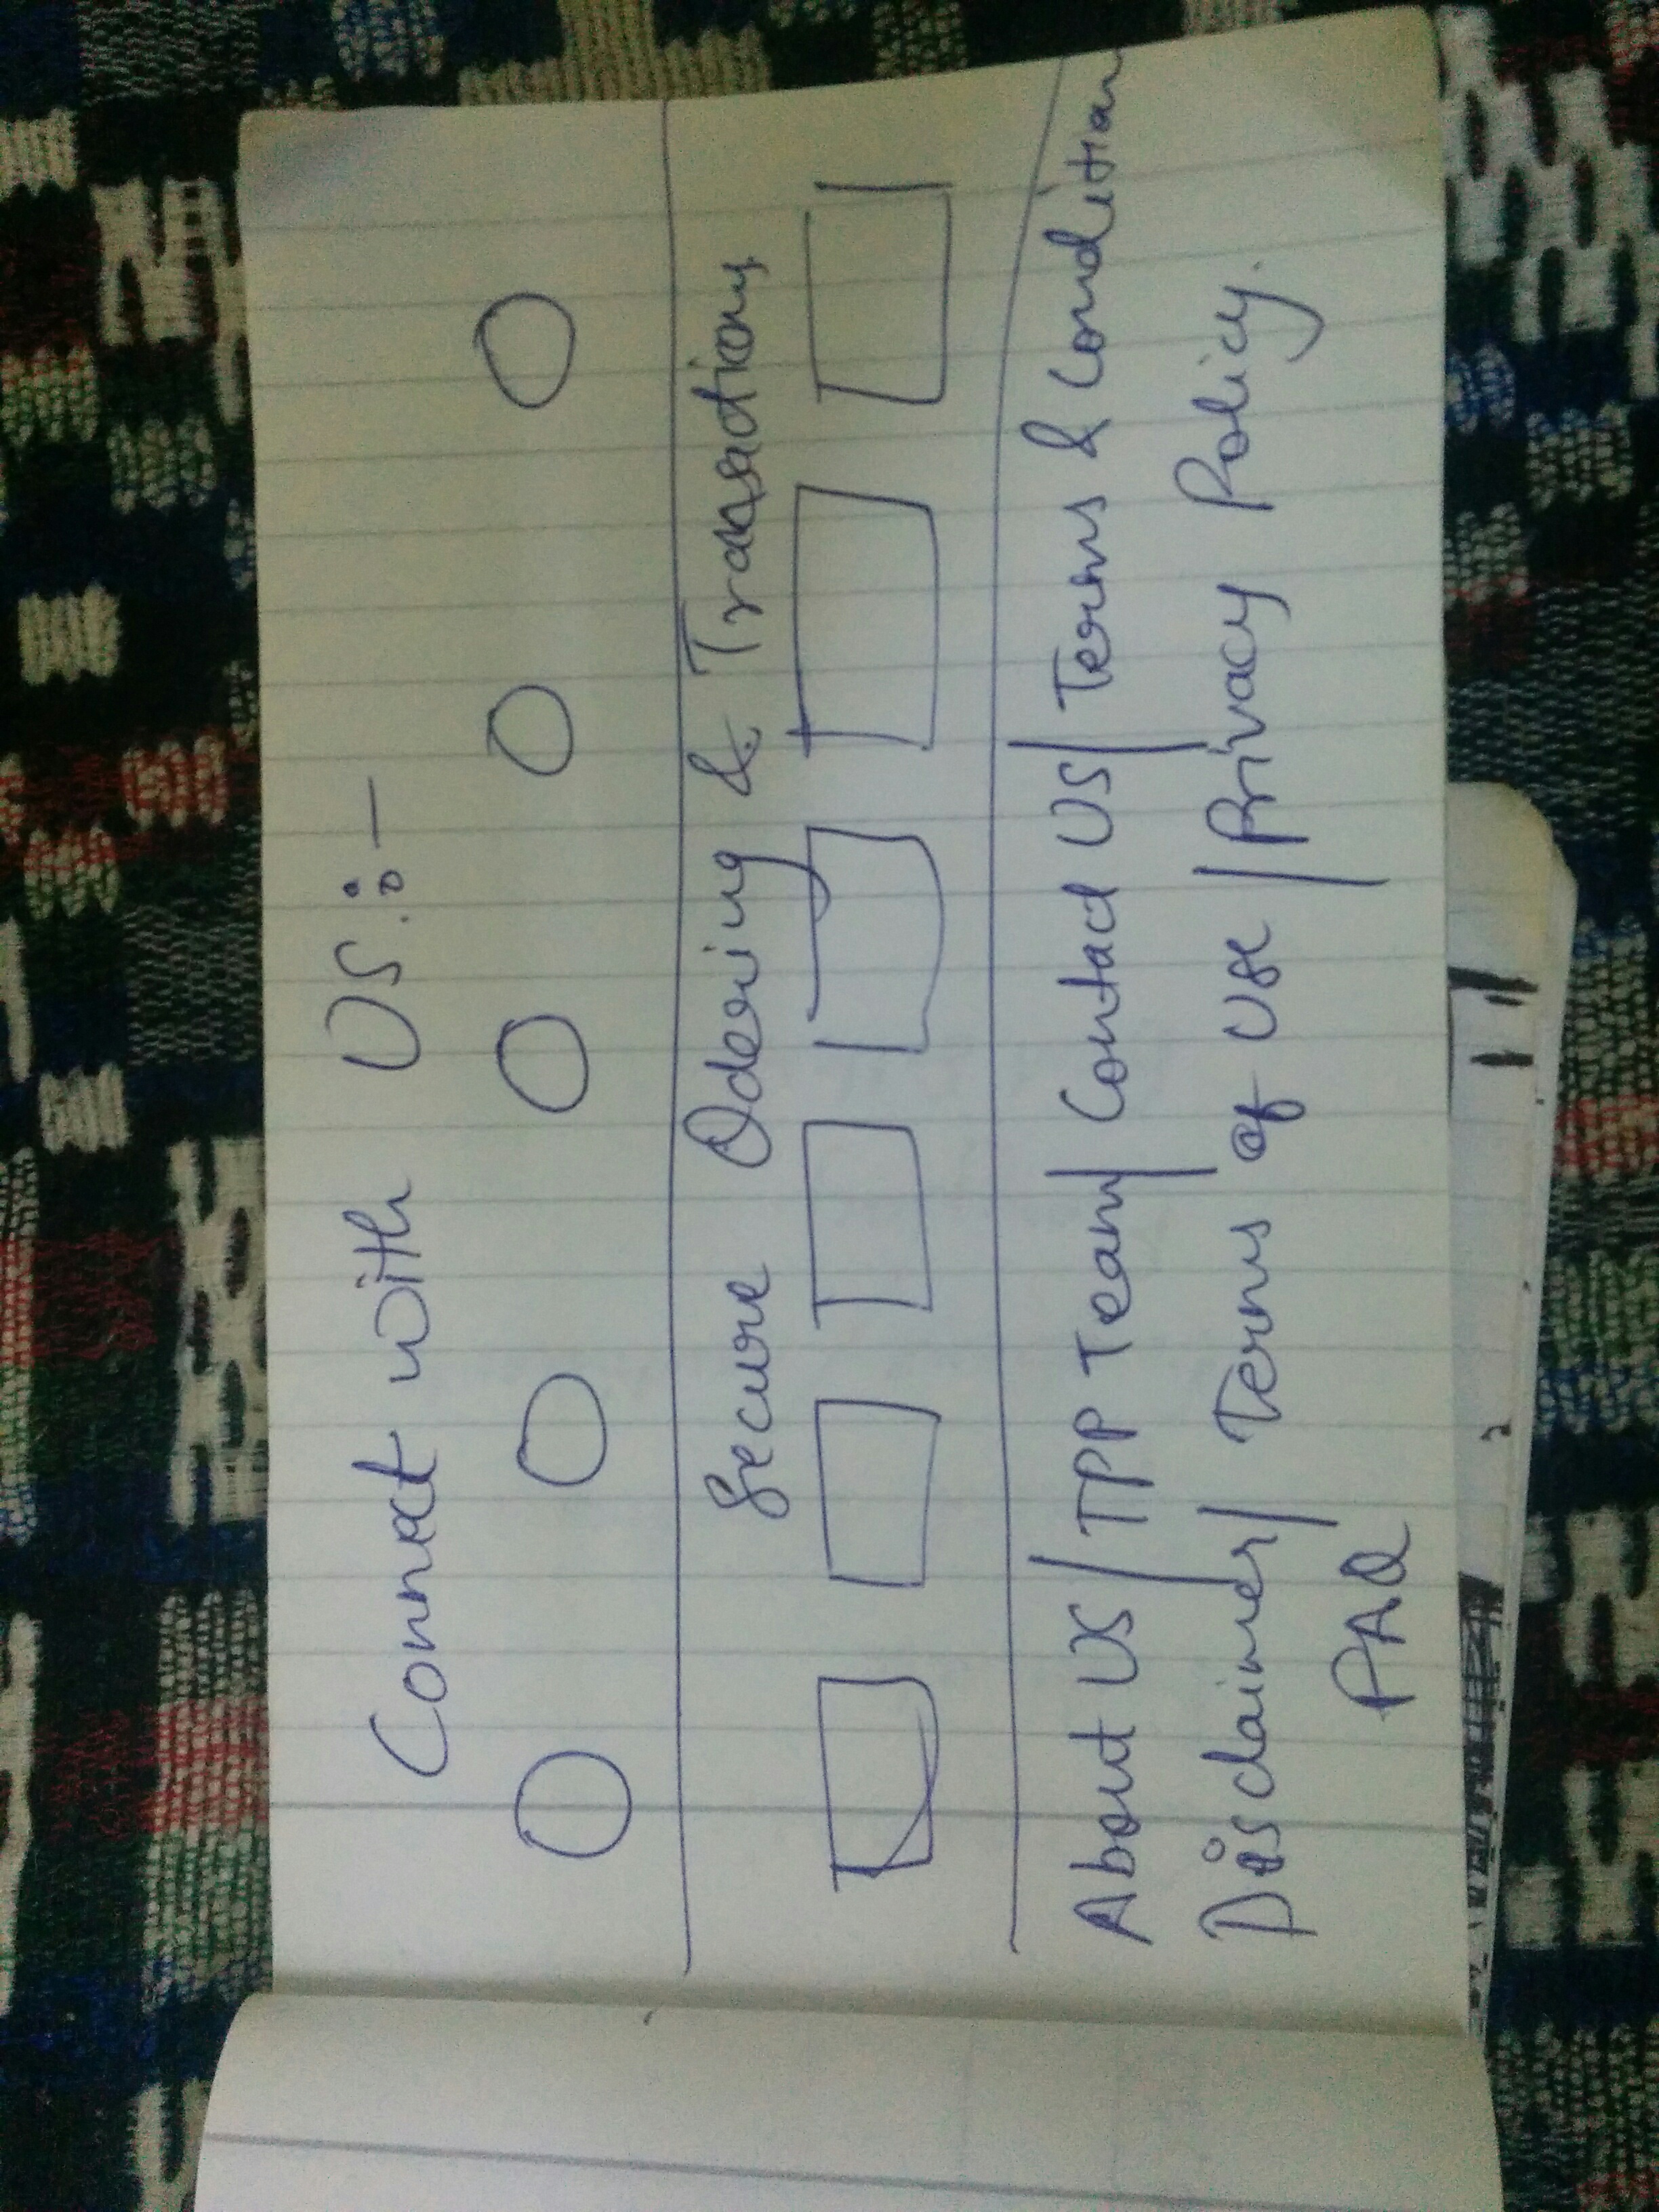 Connect with US. :-
Secure Odering & Transactions
About US / TPP Team / Contact US / Terms & Condition
Disclaimer / Terms of Use / Privacy Policy.
FAQ